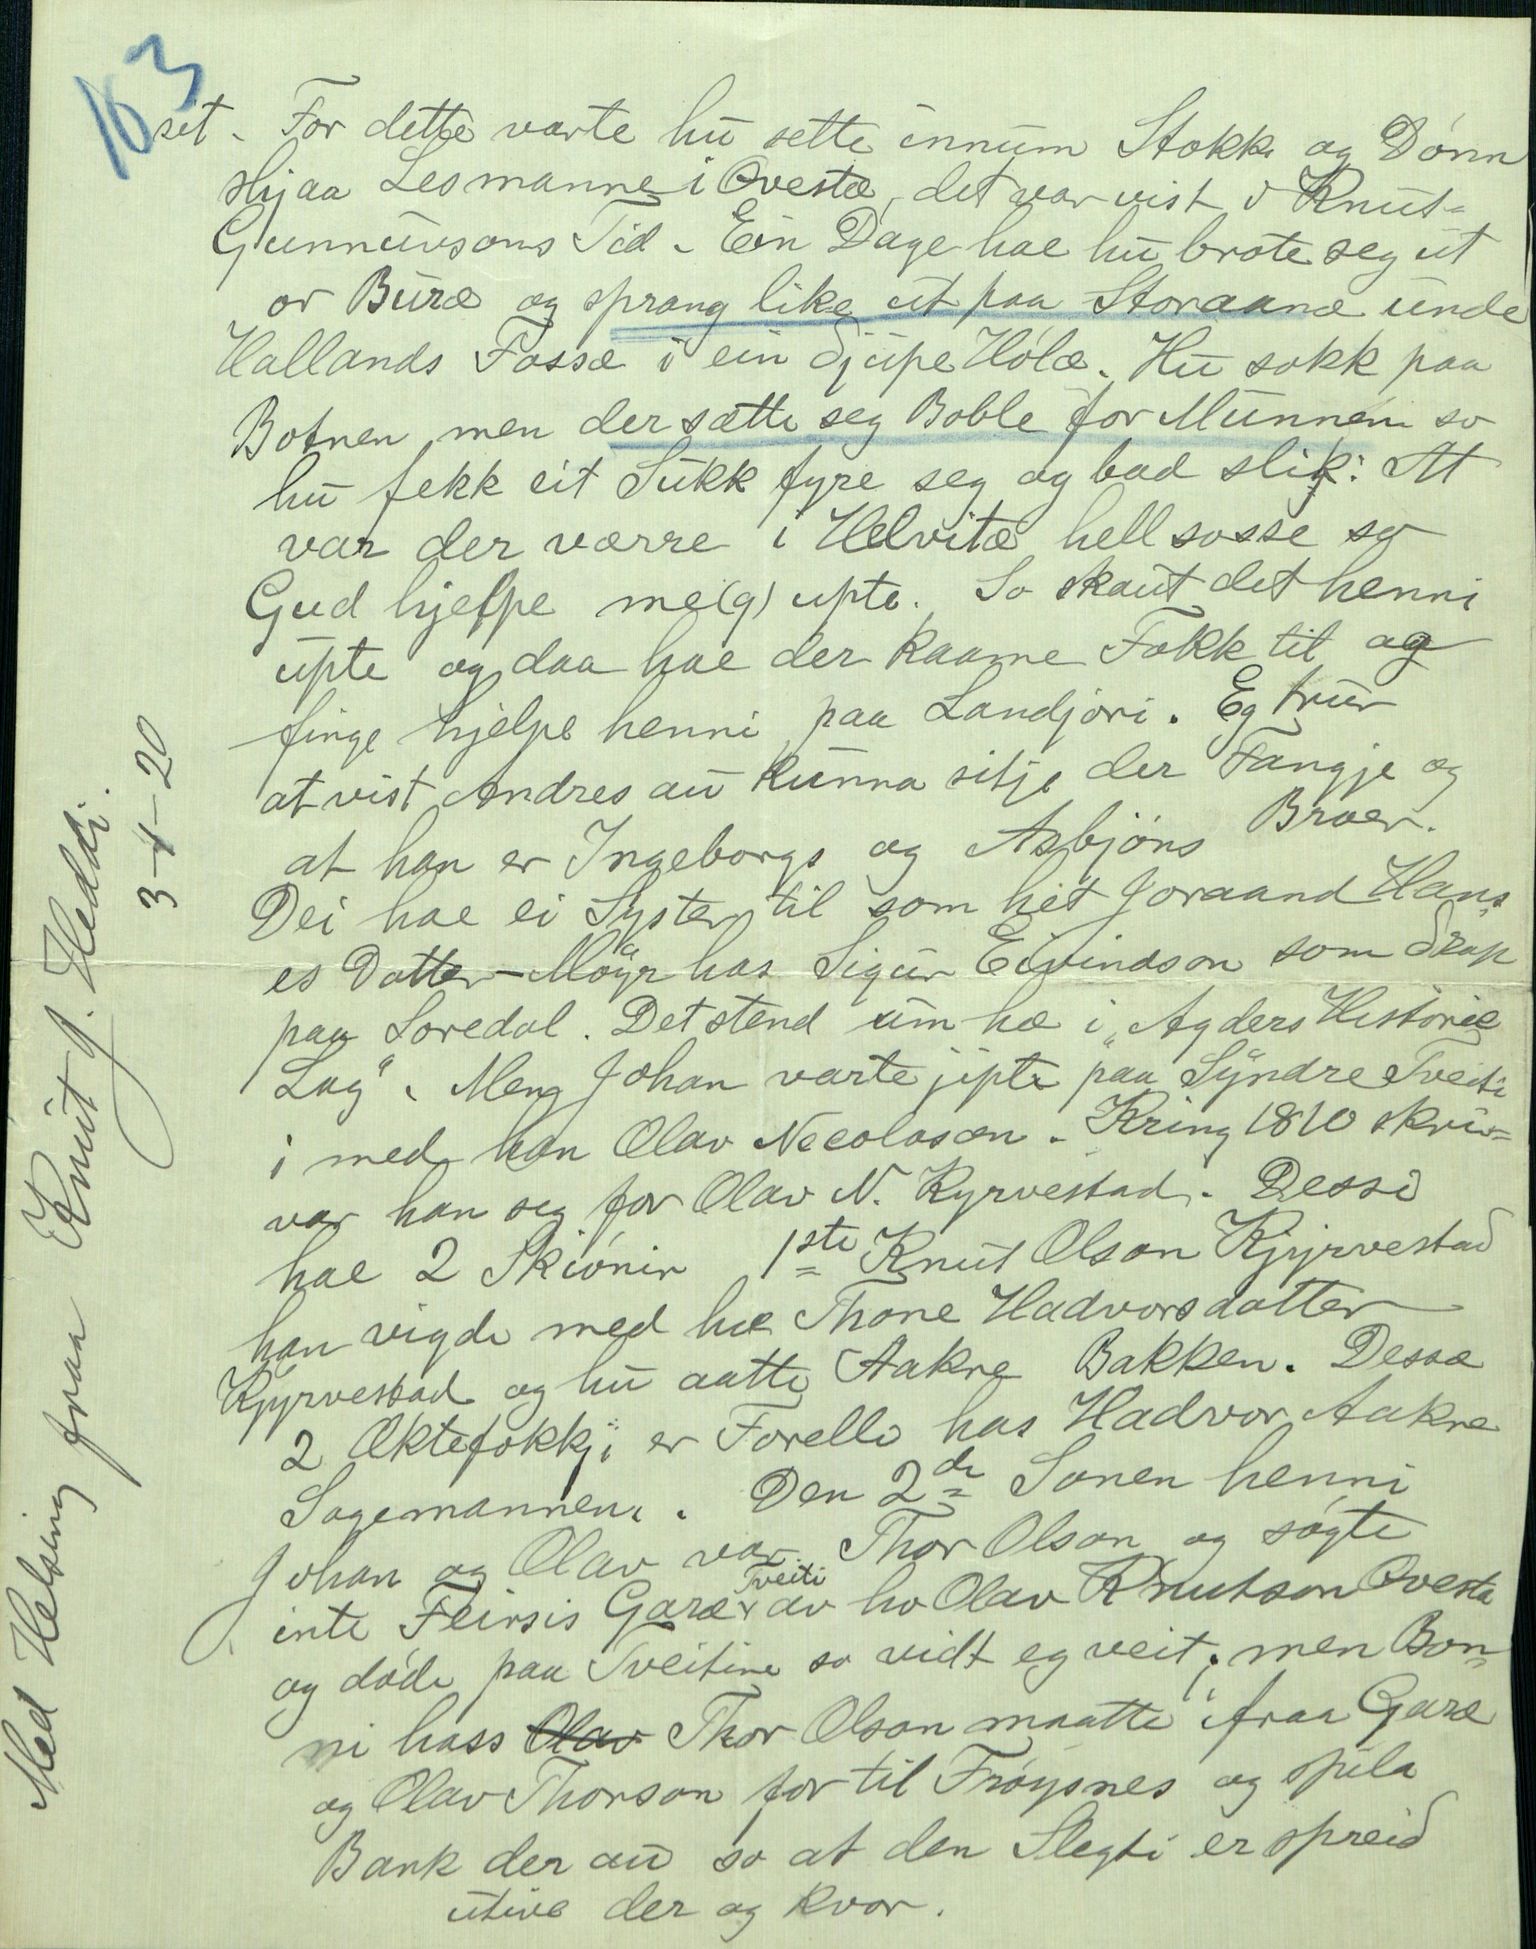 163
sit. For dette varte hu sette innum Stokk og Dónn
hjaa Lesmanne i Ovestæ, det var vist i Knut-
Gunnunsons Tid. Ein Dage hae hu brote seg ut
or Buræ og sprang like ut paa Storaanæ unde
Hallands Fossæ i ein djupe Hólæ. Hu sokk paa
Botnen, men der sætte seg Boble for Munnen so
hu fekk eit Sukk fyre seg og bad slik: At
var der værre i Helvitæ hell sosse so
Gud hjelpe me(g) upte. So skaut det henni
upte og daa hae der kaame Fokk til og
finge hjelpe henni paa Landjori. Eg trur
at vist Andres au kunna sitje der Fangje og
at han er Ingeborgs og Asbjóns Broer.
Dei hae ei Syster til som hét Joraand Hans
es Datter - Móyr has Sigur Eivindson som drap
paa Loredal. Det stend um hæ i "Agders Historie
Lag". Meng Johan varte jipte paa Syndre Tveiti
i med han Olav Necolason. Kring 1810 skri-
var han seg for Olav N. Kyrvestad. Dessi
hae 2 Skiónir 1ste Knut Olson Kjyrvestad
han vigde med hæ Thone Hadvorsdatter
Kjyrvestad og hu aatte Aakre Bakken. Dessæ
2 Ektefokkji er Forelli has Hadvor Aakre
Sogemannen. Den 2de Sonen henni
Johan og Olav var Thor Olson og søgte
inte Fleirsis Garæ Tveiti av ho Olav Knutson Ovesta
og dóde paa Tveitine so vidt eg veit; men Bon-
ni hass Olav Thor Olson maatte ifraa Garæ
og Olav Thorson for til Fróysnes og spila
Bank der au so at den Slegti er spreid
utive der og kvor.
Med Helsing fraa Knut J. Heddi.
3-4-20